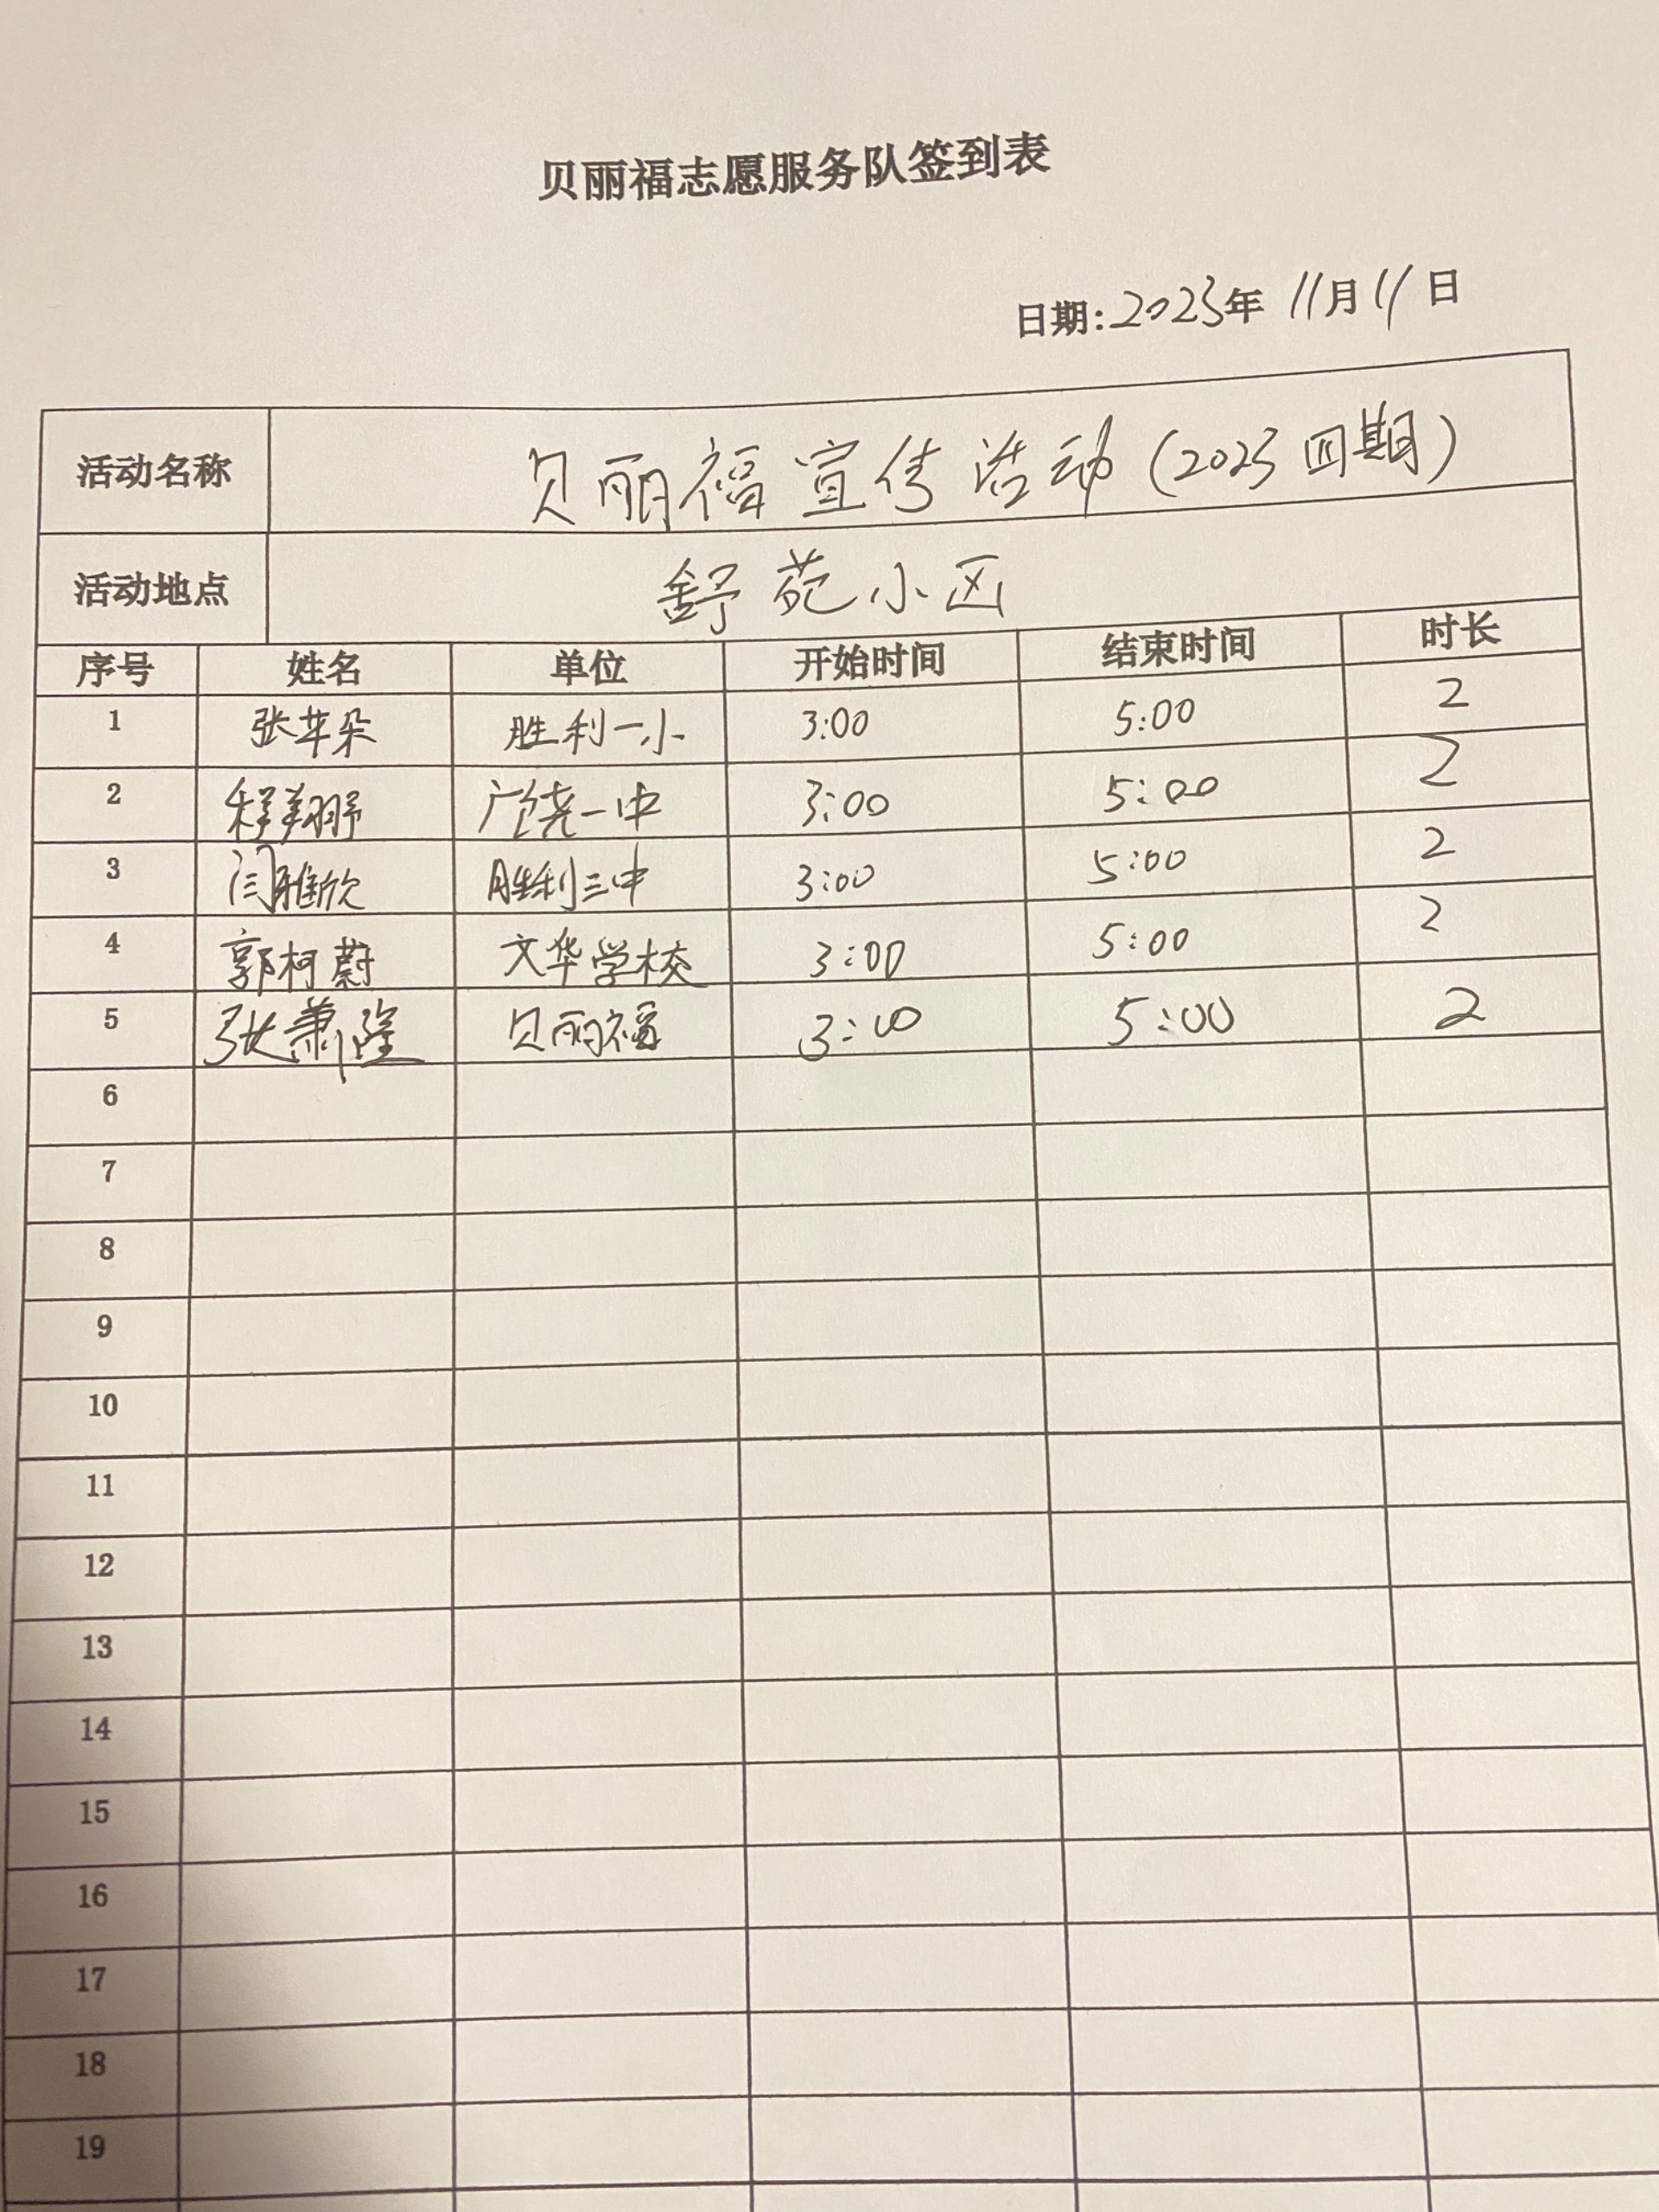 贝丽福志愿服务队签到表
日期:2023年 11月11日
活动名称 贝丽福宣传活动(2023四期)
活动地点 舒苑小区
序号 姓名 单位 开始时间 结束时间 时长
1 张芷朵 胜利一小 3:00 5:00 2
2 程翔舒 广饶一中 3:00 5:00 2
3 闫雅欣 胜利三中 3:00 5:00 2
4 郭柯蔚 文华学校 3:00 5:00 2
5 张萧隆 贝丽福 3:00 5:00 2
6
7
8
9
10
11
12
13
14
15
16
17
18
19